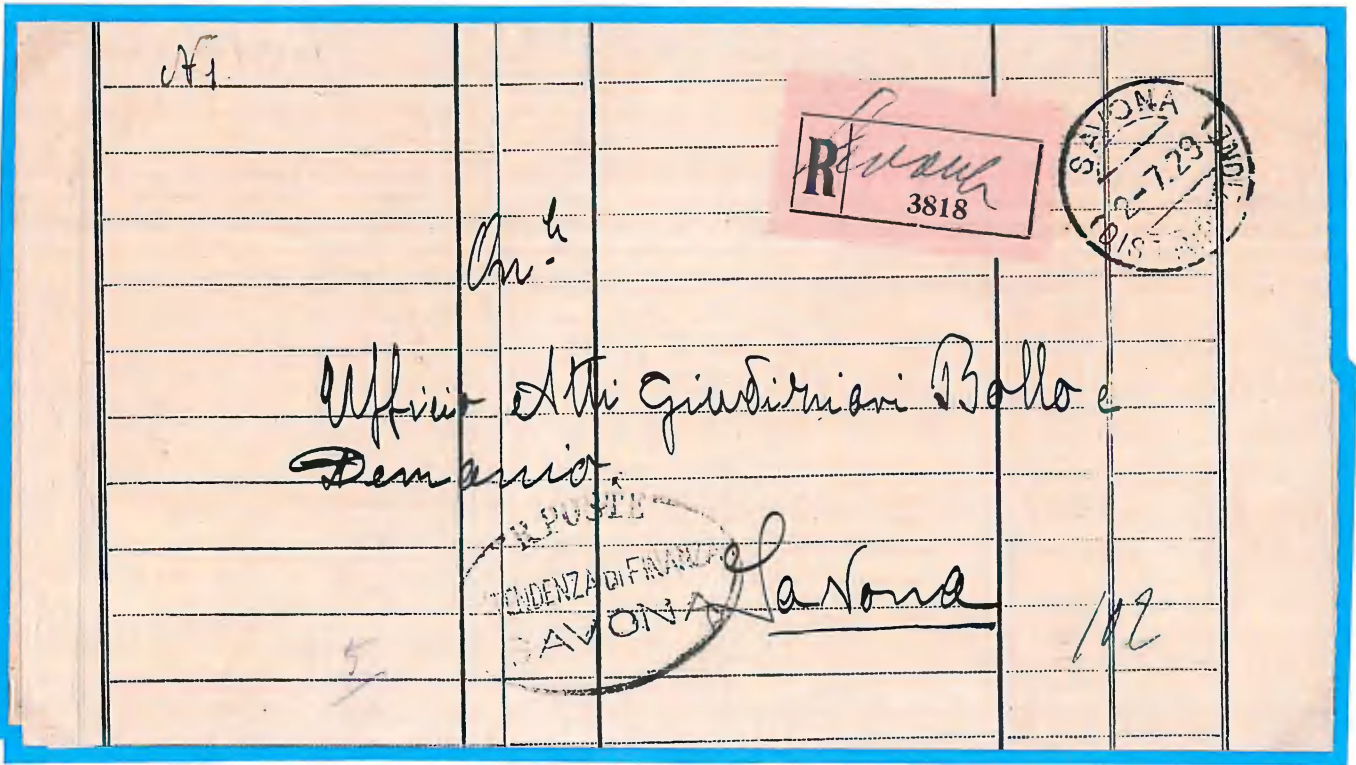 N 1
R Savona
3818
SAVONA
2-7.29
On.li
Ufficio Atti Giudiziari Bollo e
Demanio.
R. POSTE
TENDENZA DI FINANZA
SAVONA
Savona
5
102